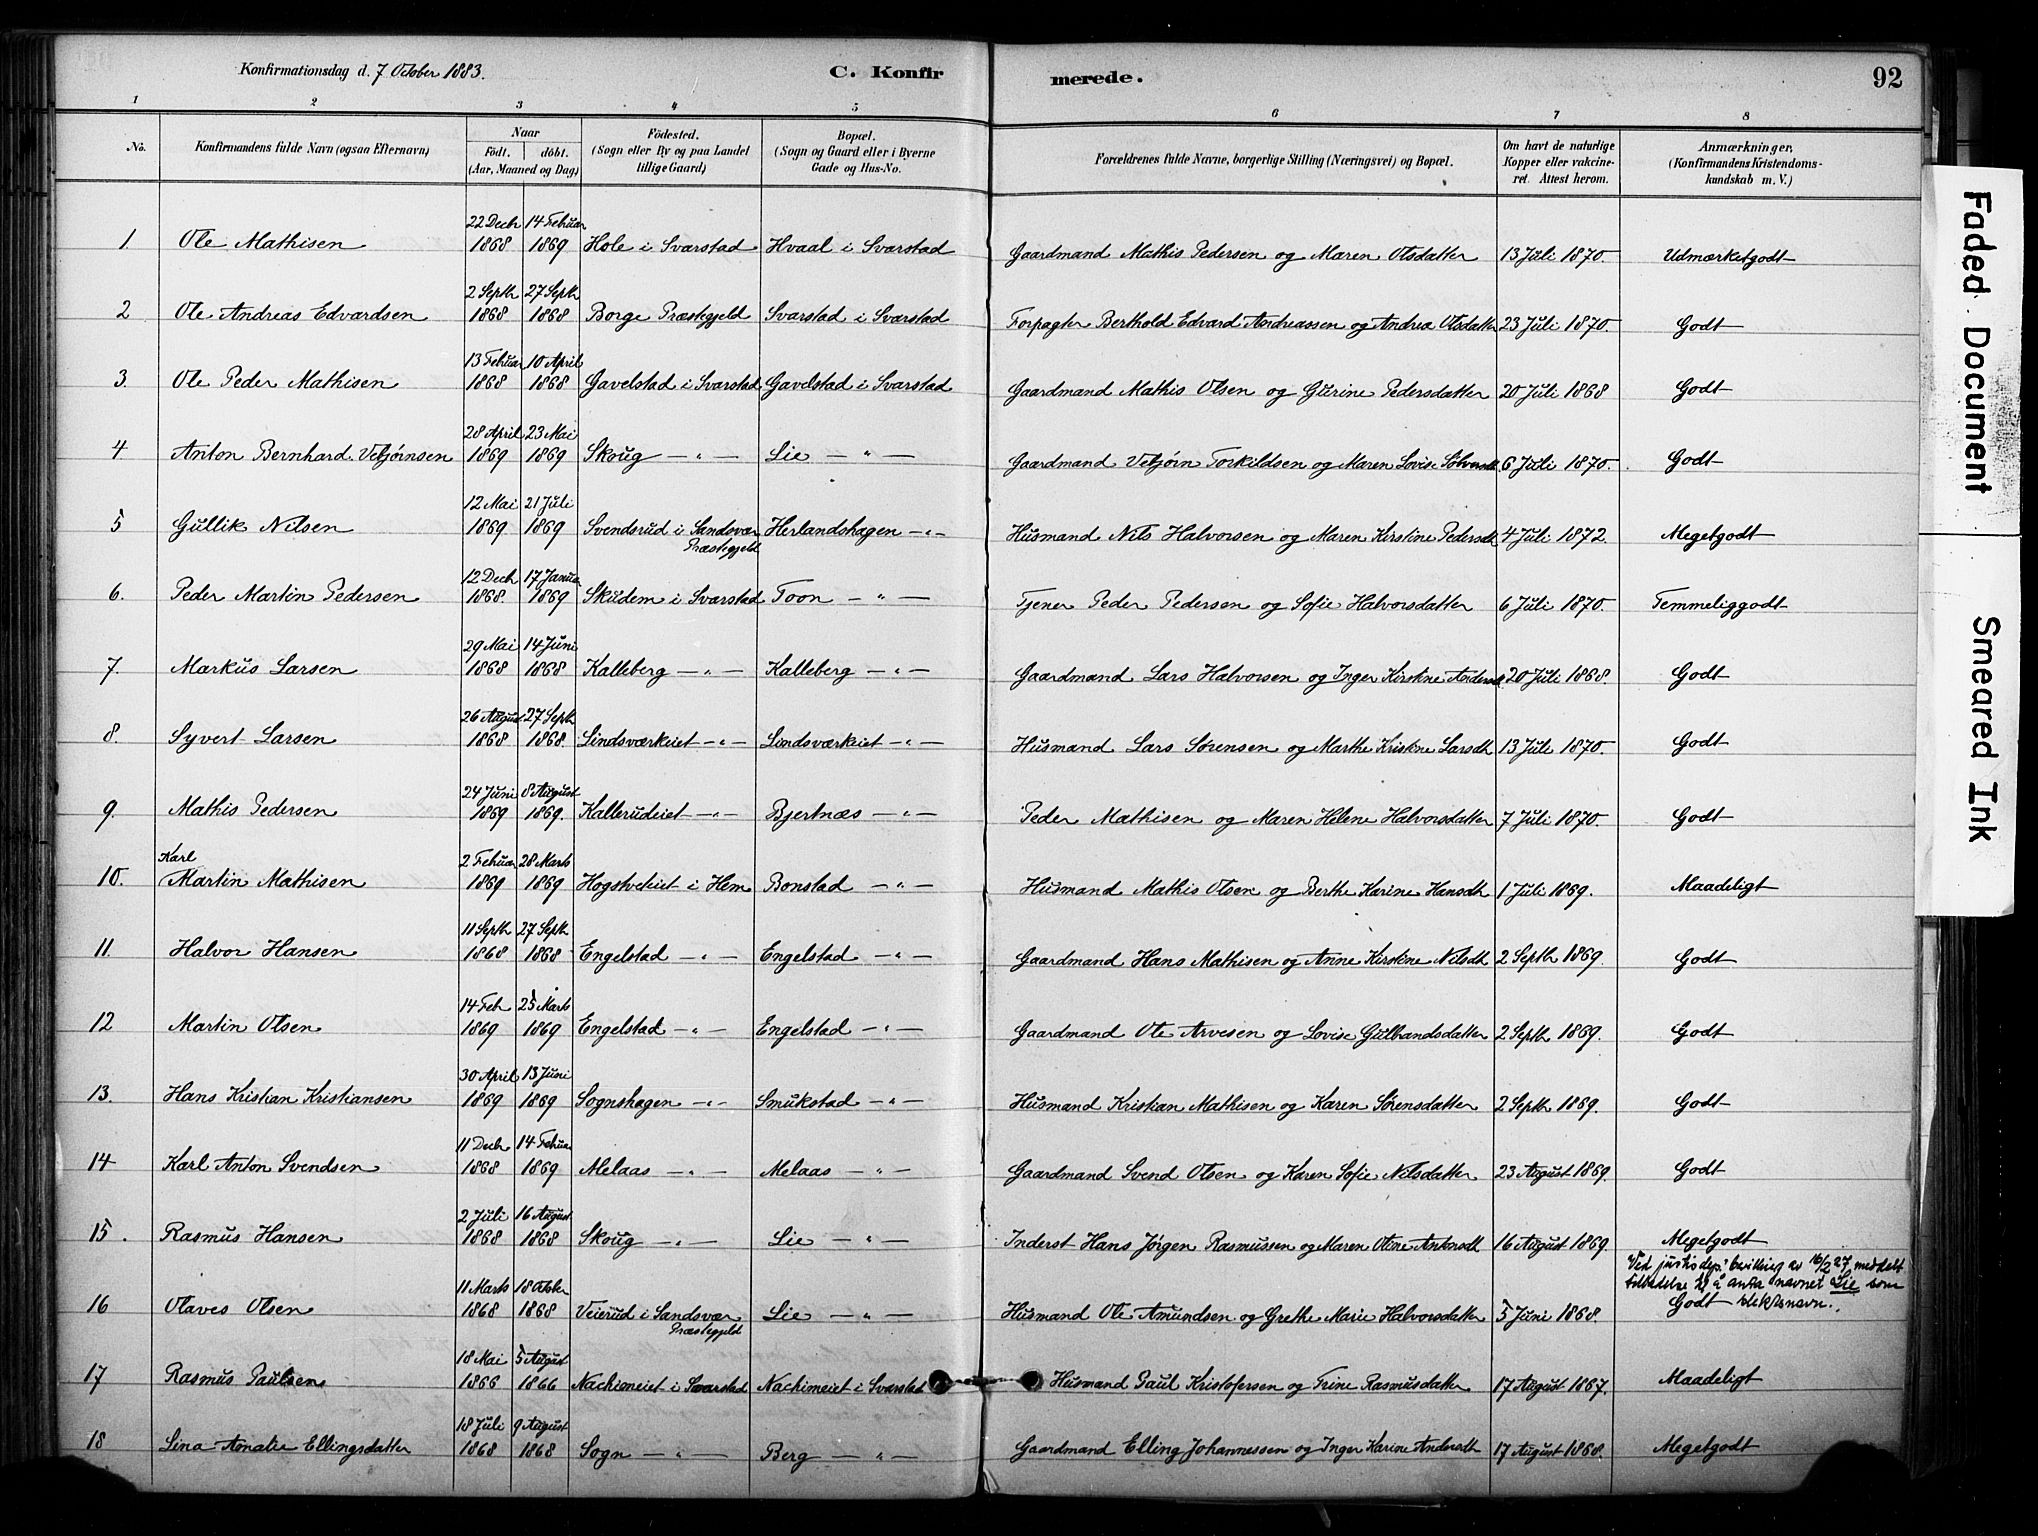 Konfirmationsdag d. 7 October 1883.
C. Konfirmerede.
92
1 2 3 4 5 6 7 8
No. Konfirmandens fulde Navn (ogsaa Efternavn) Naar Födt. döbt. (Aar, Maaned og Dag) Födested. (Sogn eller By og paa Landet tillige Gaard) Bopæl. (Sogn og Gaard eller i Byerne Gade og Hus-No. Forældrenes fulde Navne, borgerlige Stilling (Næringsvei) og Bopæl. Om havt de naturlige Kopper eller vakcineret. Attest herom. Anmærkninger, (Konfirmandens Kristendomskundskab m. V.)
1 Ole Mathisen 22 Decb 1868 14 Februar 1869 Hole i Svarstad Hvaal i Svarstad Gaardmand Mathis Pedersen og Maren Olsdatter 13 Juli 1870. Udmærketgodt
2 Ole Andreas Edvardsen 2 Septb 1868 27 Septb 1868 Borge Præstegjeld Svarstad i Svarstad Forpagter Berthold Edvard Andreassen og Andrea Olsdatter 23 Juli 1870. Godt
3. Ole Peder Mathisen 13 Februar 1868 10 April 1868 Gavelstad i Svarstad Gavelstad i Svarstad Gaardmand Mathis Olsen og Gurine Pedersdatter 20 Juli 1868 Godt
4 Anton Bernhard Vebjørnsen 28 April 1869 23 Mai 1869 Skoug — " — Lie — " — Gaardmand Vebjørn Torkildsen og Maren Lovise Sølversdt 6 Juli 1870. Godt
5 Gullik Nilsen 12 Mai 1869 21 Juli 1869 Svendsrud i Sandsvær Præstegjeld Herlandshagen — " — Husmand Nils Halvorsen og Maren Kirstine Pedersdt 4 Juli 1872. Megetgodt
6. Peder Martin Pedersen 12 Decb 1868. 17 Januar 1869 Skudem i Svarstad Foon — " — Tjener Peder Pedersen og Sofie Halvorsdatter 6 Juli 1870. Temmeliggodt
7. Markus Larsen 29 Mai 1868 14 Juni 1868 Kalleberg — " — Kalleberg — " — Gaardmand Lars Halvorsen og Inger Kirstine Andersdt. 20 Juli 1868. Godt
8. Syvert Larsen 26 August 1868 27 Septb 1868. Lindsværkeiet — " — Lindsværkeiet — " — Husmand Lars Sørensen og Marthe Kirstine Larsdt 13 Juli 1870. Godt
9. Mathis Pedersen 24 Juni 1869 8 August 1869. Kallerudeiet — " — Bjertnæs — " — Peder Mathisen og Maren Helene Halvorsdatter 7 Juli 1870. Godt
10. Karl Martin Mathisen 2 Februar 1869 28 Marts 1869 Hogstveteiet i Hem Bonstad — " — Husmand Mathis Olsen og Berthe Karine Hansdt 1 Juli 1869. Maadeligt
11. Halvor Hansen 11 Septb 1868 27 Septb 1868 Engelstad — " — Engelstad — " — Gaardmand Hans Mathisen og Anne Kirstine Nilsdt 2 Septb 1869. Godt
12 Martin Olsen 14 Feb 1869 25 Marts 1869 Engelstad — " — Engelstad — " — Gaardmand Ole Arvesen og Lovise Gulbrandsdatter 2 Septb 1869. Godt
13. Hans Kristian Kristiansen 30 April 1869 13 Juni 1869 Sognshagen — " — Smukstad — " — Husmand Kristian Mathisen og Karen Sørensdatter 2 Septb 1869. Godt
14 Karl Anton Svendsen 11 Decb 1868 14 Februar 1869 Melaas — " — Melaas — " — Gaardmand Svend Olsen og Karen Sofie Nilsdatter 23 August 1869. Godt
15. Rasmus Hansen 2 Juli 1868 16 August 1868 Skoug — " — Lie — " — Inderst Hans Jørgen Rasmussen og Maren Oline Antonsdt 16 August 1869. Megetgodt
Ved justisdep.' bevilling av 16/2 27 meddelt
tilladelse til å anta navnet Lie som
slektsnavn.
16 Olaves Olsen 11 Marts 1868 18 Octbr 1868 Veierud i Sandsvær Præstegjeld Lie — " — Husmand Ole Amundsen og Grethe Marie Halvorsdatter 5 Juni 1868. Godt
17 Rasmus Paulsen 18 Mai 1866 5 August 1866 Nachimeiet i Svarstad Nachimeiet i Svarstad Husmand Paul Kristofersen og Trine Rasmusdatter 17 August 1867. Maadeligt
18 Lina Amalie Ellingsdatter 18 Juli 1868 9 August 1868 Sogn — " — Berg — " — Gaardmand Elling Johannessen og Inger Karine Andersdt 17 August 1868. Megetgodt
Faded Document
Smeared Ink